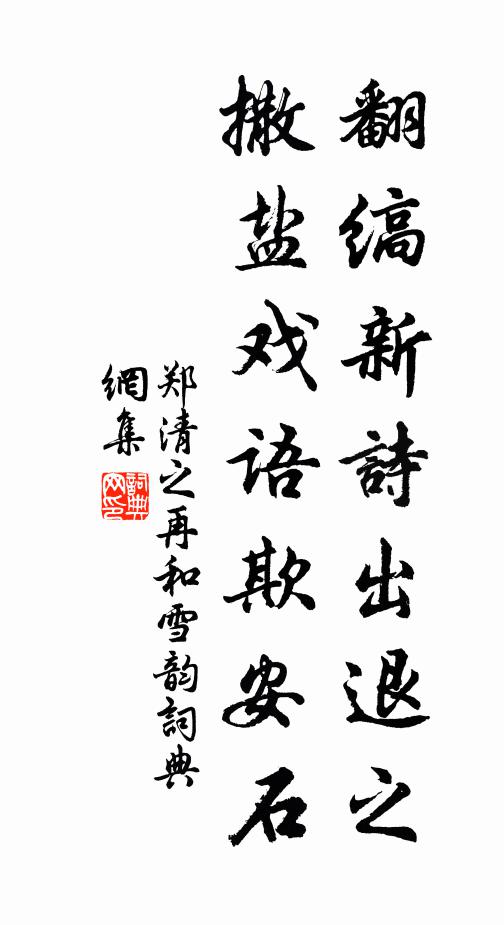 翻缟新詩出退之
撒盐戏语欺安石
郑清之再和雪韵詞典
網集
詞典網印